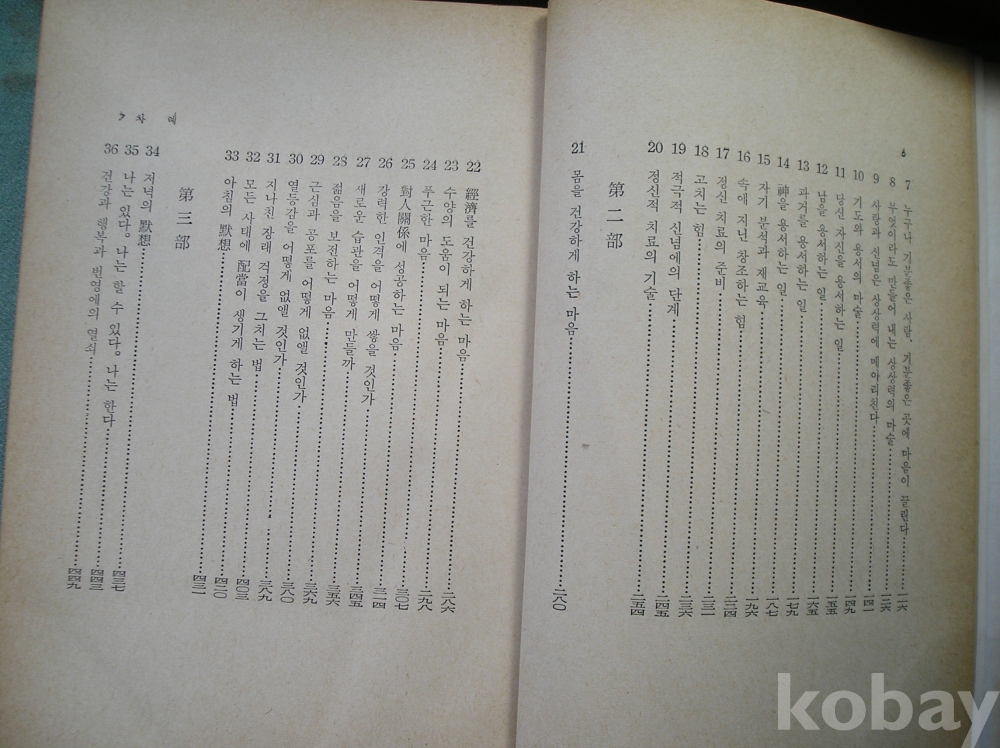 6
7 누구나 기분좋은 사람, 기분좋은 곳에 마음이 끌린다 一一六
8 무엇이라도 만들어 내는 상상력의 마술 一二六
9 사랑과 신념은 상상력에 메아리친다 一四一
10 기도와 용서의 마술 一四九
11 당신 자신을 용서하는 일 一五五
12 남을 용서하는 일 一六五
13 과거를 용서하는 일 一七九
14 神을 용서하는 일 一八七
15 자기 분석과 재교육 一九六
16 속에 지닌 창조하는 힘 二二四
17 정신 치료의 준비 二三一
18 고치는 힘 二三六
19 적극적 신념에의 단계 二四五
20 정신적 치료의 기술 二五四
第二部
21 몸을 건강하게 하는 마음 二八〇
7 차 례
22 經濟를 건강하게 하는 마음 二八六
23 수양의 도움이 되는 마음 二九八
24 푸근한 마음 三〇七
25 對人關係에 성공하는 마음 三一四
26 강력한 인격을 어떻게 쌓을 것인가 三四五
27 새로운 습관을 어떻게 만들까 三五六
28 젊음을 보전하는 마음 三六九
29 근심과 공포를 어떻게 없앨 것인가 三八〇
30 열등감을 어떻게 없앨 것인가 三八九
31 지나친 장래 걱정을 그치는 법 四〇三
32 모든 사태에 配當이 생기게 하는 법 四二〇
33 아침의 默想 四三一
第三部
34 저녁의 默想 四三七
35 나는 있다。나는 할 수 있다。나는 한다 四四三
36 건강과 행복과 번영에의 열쇠 四四九
kobay